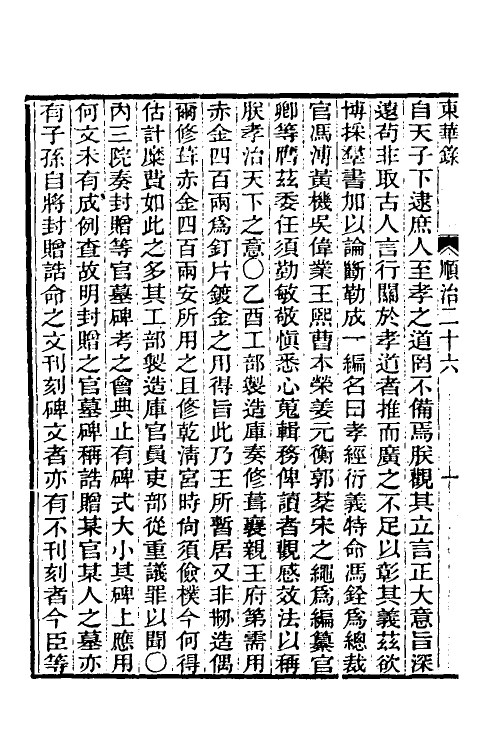 東華錄 順治二十六 十
自天子下逮庶人至孝之道罔不備焉朕觀其立言正大意旨深
遠苟非取古人言行關於孝道者推而廣之不足以彰其義茲欲
博採羣書加以論斷勒成一編名曰孝經衍義特命馮銓為總裁
官馮溥黃機吳偉業王熙曹本榮姜元衡郭棻宋之繩為編纂官
卿等膺茲委任須勤敏敬慎悉心蒐輯務俾讀者觀感效法以稱
朕孝治天下之意〇乙酉工部製造庫奏修葺襄親王府第需用
赤金四百兩為釘片鍍金之用得旨此乃王所暫居又非刱造偶
爾修葺赤金四百兩安所用之且修乾淸宮時尙須儉樸今何得
估計糜費如此之多其工部製造庫官員吏部從重議罪以聞〇
內三院奏封贈等官墓碑考之會典止有碑式大小其碑上應用
何文未有成例查故明封贈之官墓碑稱誥贈某官某人之墓亦
有子孫自將封贈誥命之文刊刻碑文者亦有不刊刻者今臣等